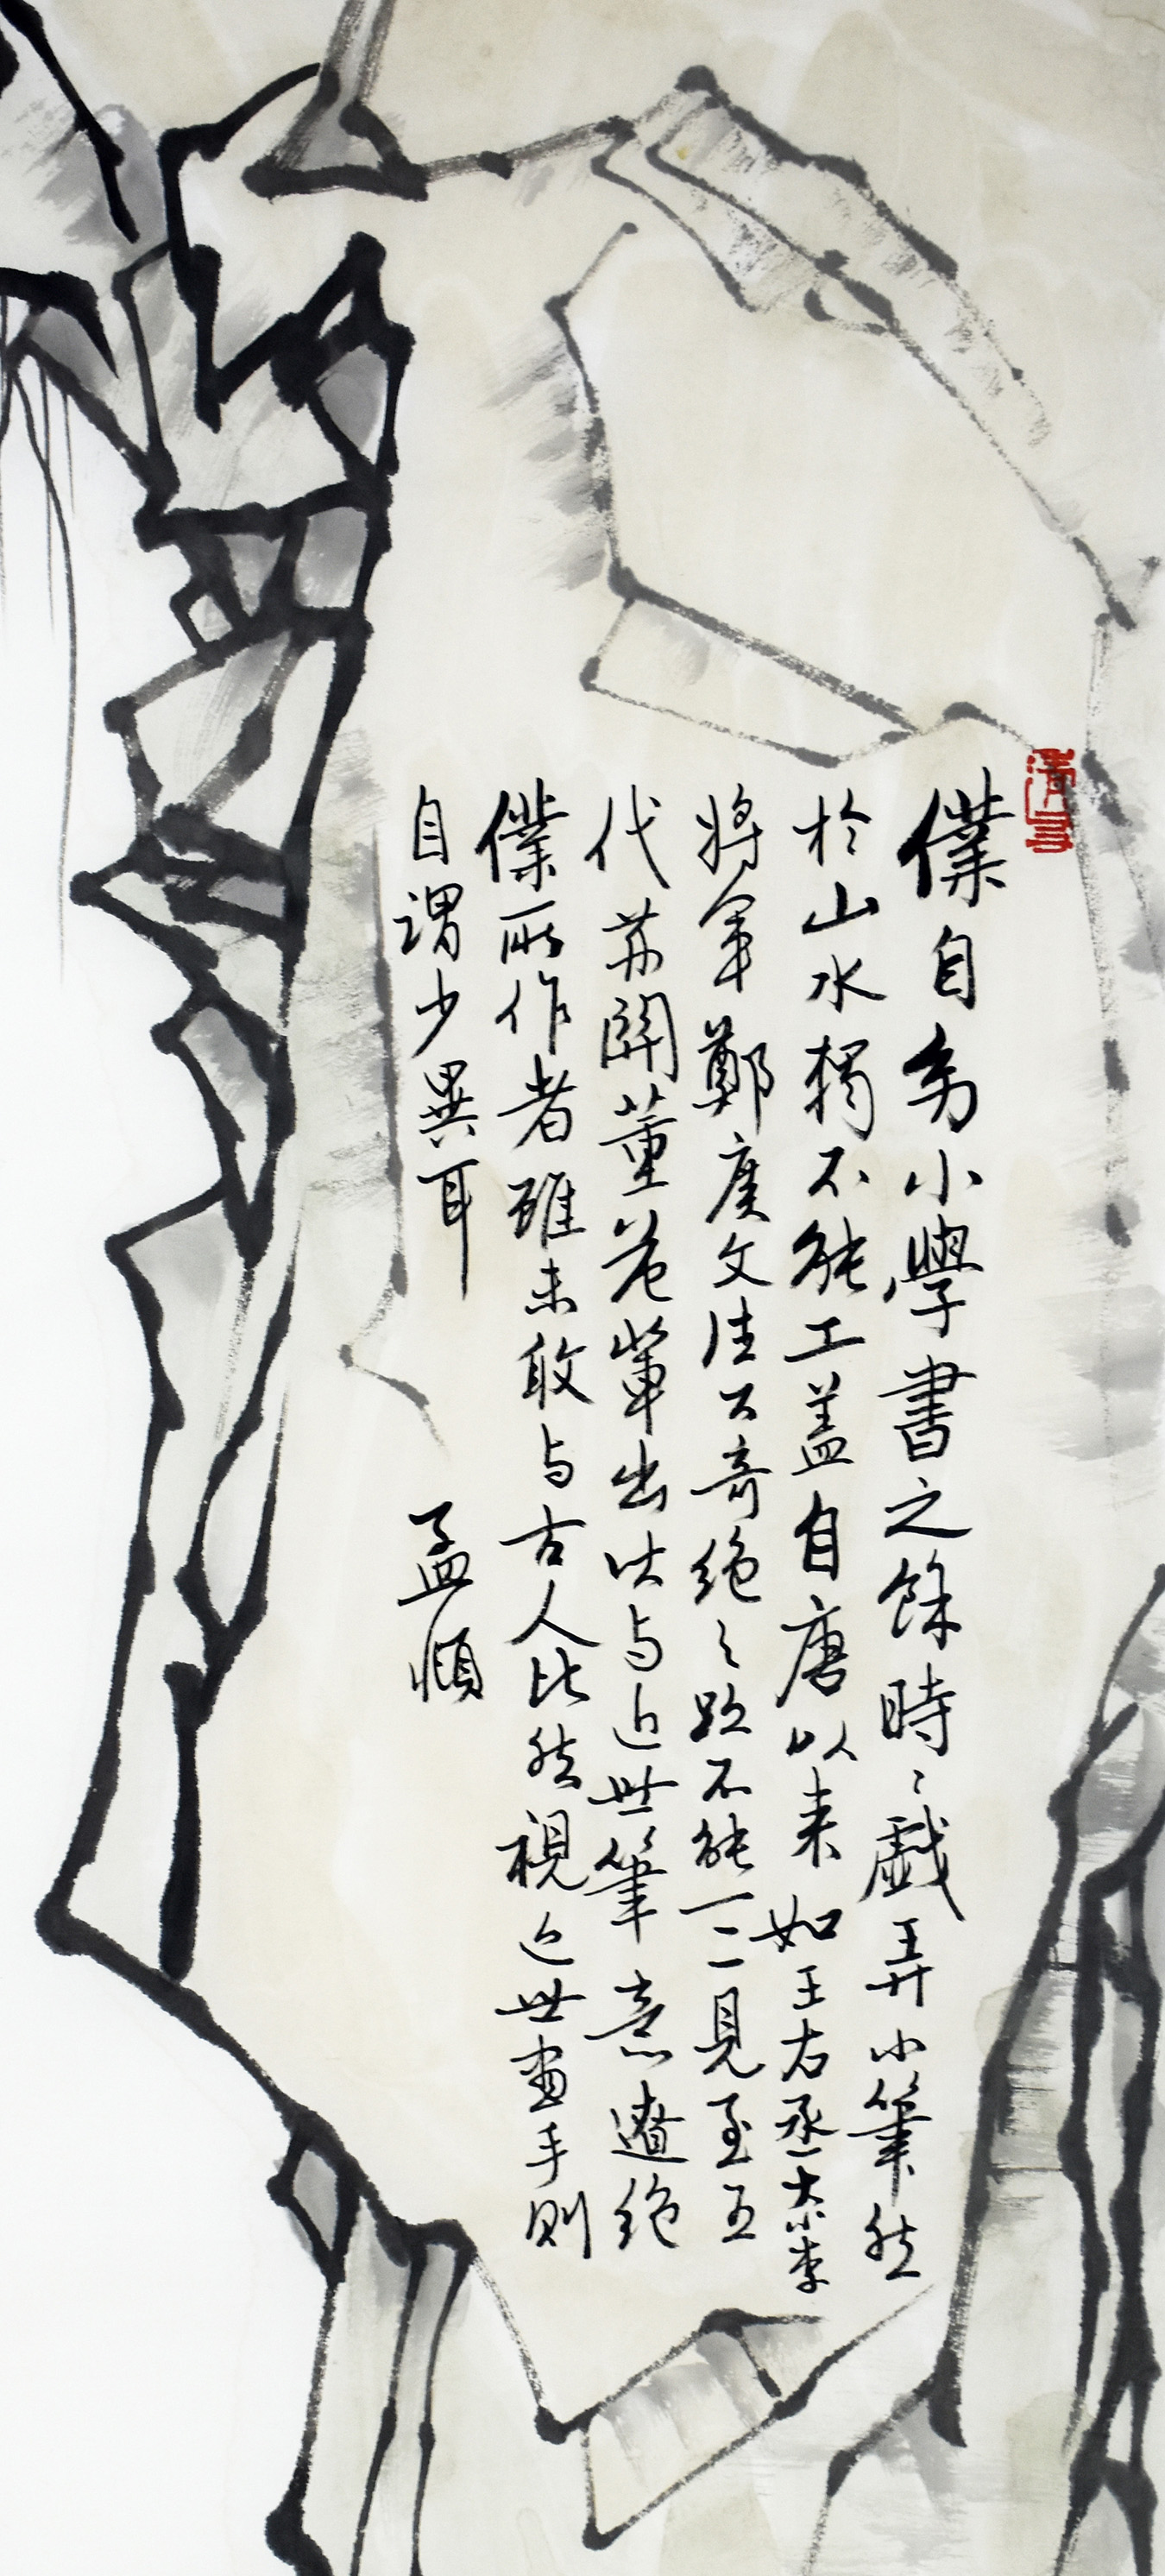 僕自幼小學書之餘時々戯弄小筆然
於山水獨不能工蓋自唐以来如王右丞大小李
將軍鄭廣文諸公奇絶之跡不能一二見至五
代荆關董范輩出皆与近世筆意遼絶
僕所作者雖未敢与古人比然視近世畫手則
自謂少異耳
孟頫